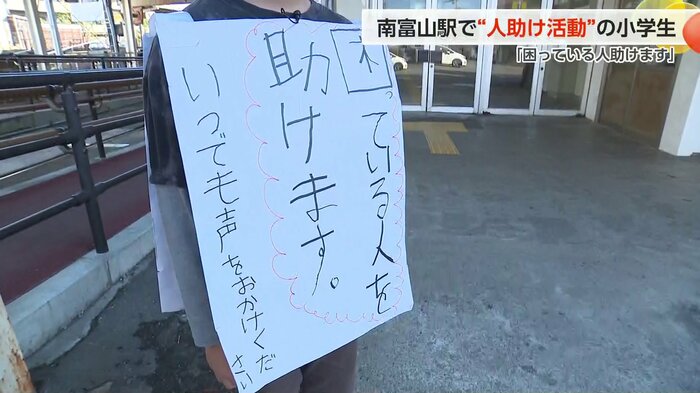 南富山駅で“人助け活動”の小学生
「困っている人助けます」
困っている人を
助けます。
いつでも声をおかけください